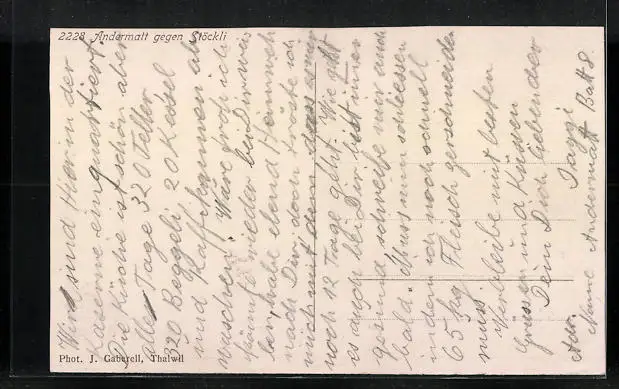 2228 Andermatt gegen Stöckli
Wir sind Hier in der
Kaserne einquartiert.
Die Küche ist schön aber
alle Tage 320 Teller
320 Beggeli 20 Kessel
und Kaffekannen ab
waschen. Wäre froh ich
könnte wieder bei Dir wei
len, habe elend Heimweh
nach Dir doch tröste ich
mich mit dem dass es nur
noch 12 Tage geht. Wie geht
es auch bei Dir bist immer
gesund schreibe mir auch
bald. Muss nun schliessen
indem ich noch schnell
65 kg Fleisch zerschneiden
muss.
Verbleibe mit besten
Grüssen und Küssen
Dein Dich liebender
Adr.
Name Andermatt Batt 8.
Phot. J. Gaberell, Thalwil